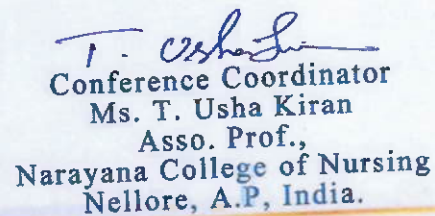 T. Usha
Conference Coordinator
Ms. T. Usha Kiran
Asso. Prof.,
Narayana College of Nursing
Nellore, A.P, India.